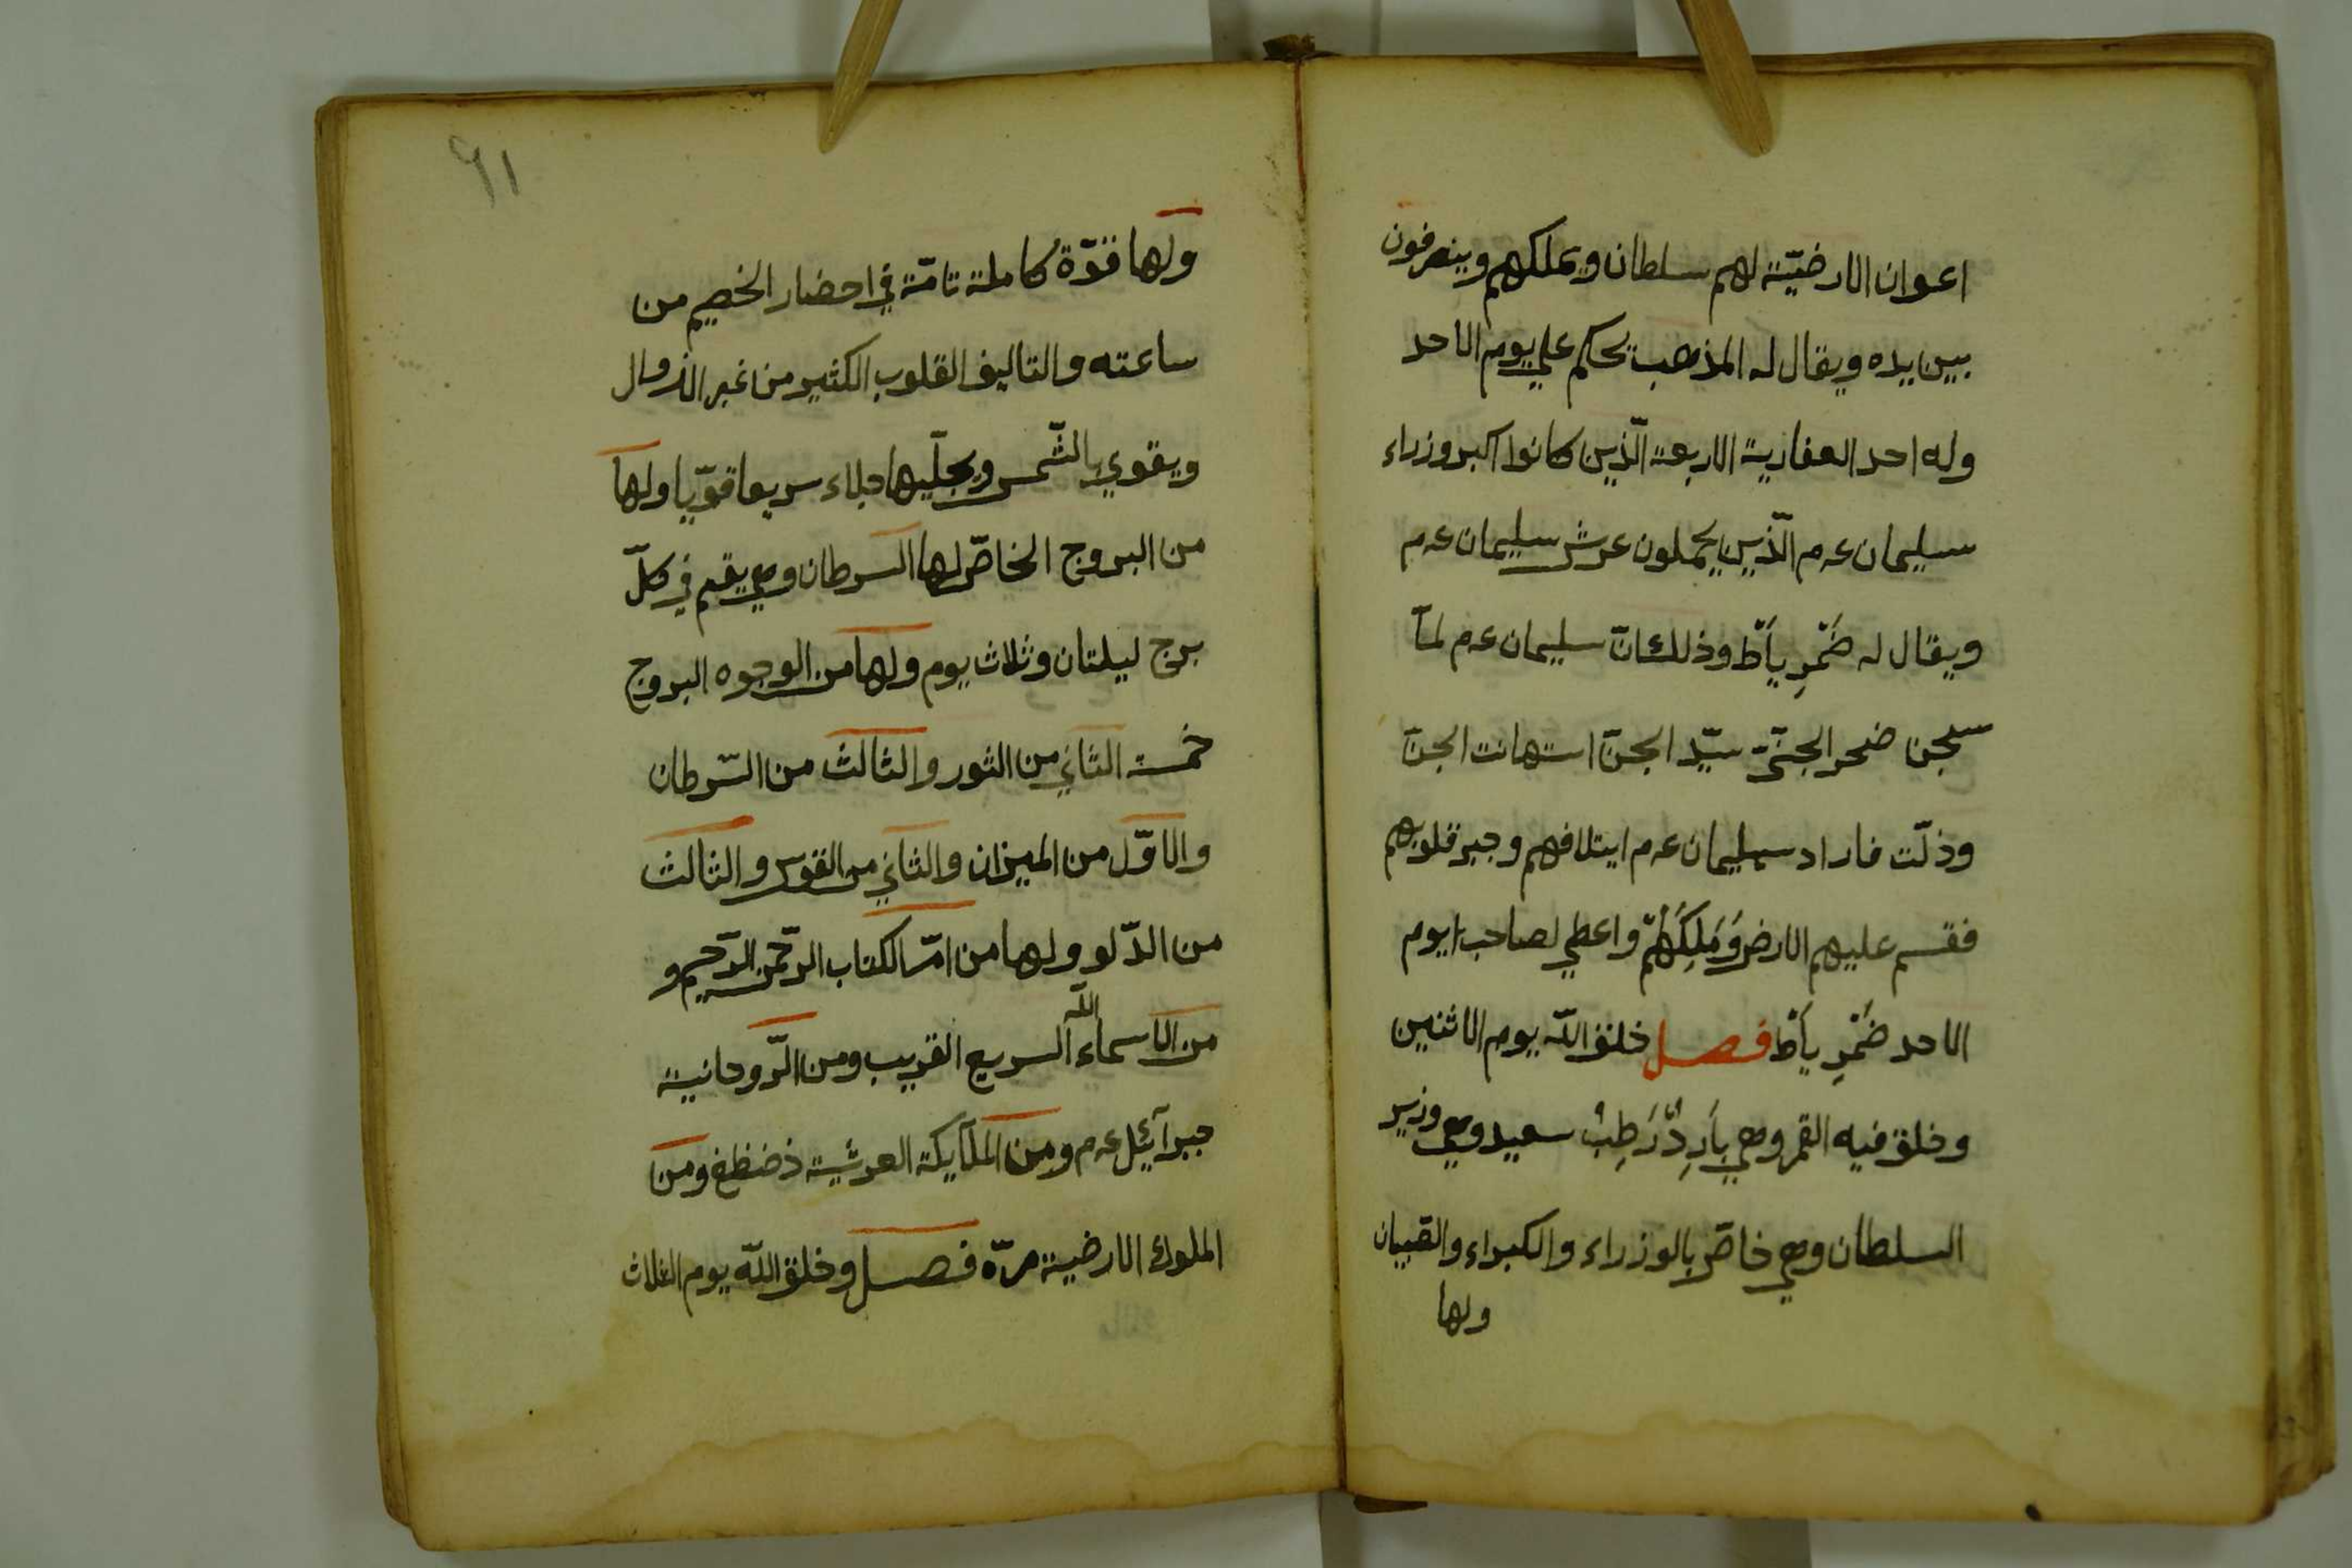 اعوان الارضيّة لهم سلطان ويملكهم وينصرفون
بين يده ويقال له المذهب تحكم علي يوم الاحد
وله احد العفارية الاربعة الّذين كانوا اكبر وزراء
سليمان عه م الّذين يحملون عرش سليمان عه م
ويقال له ضَمْرِ يَأَطْ وذلك انّ سليمان عه م لمآ
سجن ضحر الجنّيّ سيّد الجنّ استهانت الجنّ
وذلّت فاراد سليمان عه م ايتلافهم وجبر قلوبهم
فقسم عليهم الارض وَمَلِكُهُمْ واعطي لصاحب يوم
الاحد ضَمْرِ يَأَطْ فصل خلق اللّه يوم الاثنين
وخلق فيه القمر وهي بَارِدٌ رَطِبٌ سعيد وهي وزير
السلطان وهي خاصّ بالوزراء والكبراء والقبيان
ولها
٩١
ولها قوّة كاملة تامّة في احضار الخصيم من
ساعته والتاليف القلوب الكثير من غير الزوال
ويقوي بالشّمس ويجلّيها جلاء سريعا قوّيا ولها
من البروج الخاصّ لها السرطان وهي يقيم في كلّ
برج ليلتان وثلاث يوم ولها من الوجوه البروج
خمسة الثاني من الثور والثالث من السّرطان
والاوّل من الميزان والثاني من القوس والثالث
من الدّلو ولها من امّ الكتاب الرّحمن الرّحيم و
من الاسماء اللّه السريع القريب ومن الرّوحانية
جبرآئيل عه م ومن الملآيكة العرشية ذضظغ ومن
الملوك الارضية مرّه فصل وخلق اللّه يوم الثلاث